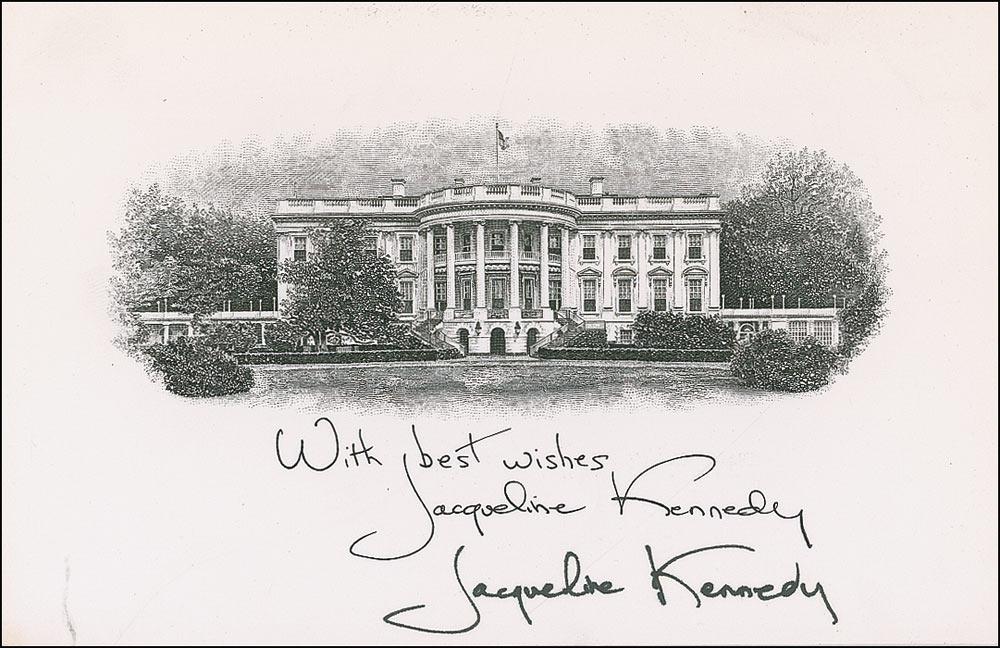 With best wishes
Jacqueline Kennedy
Jacqueline Kennedy